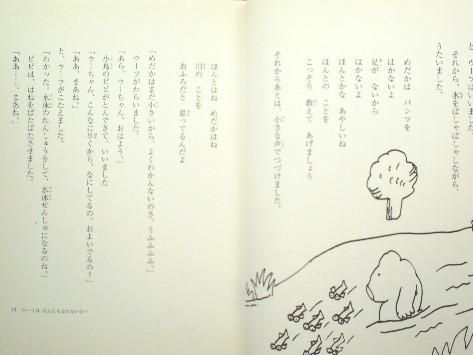 それから、水をぱしゃぱしゃしながら、
うたいました。
めだかは パンツを
はかないよ
足が ないから
はかないよ
ほんとかな あやしいね
ほんとの ことを
こっそり 教えて あげましょう
それからあとは、小さな声でつづけました。
ほんとはね めだかはね
川の ことを
おふろだと 思ってるんだよ
「めだかはまだ小さいから、よくわかんないのさ。うふふふ。」
ウーフがわらいました。
「あら、ウーちゃん、おはよう。」
小鳥のピピがとんできて、いいました
「ウーちゃん、こんなに早くから、なにしてるの。およいでるの？」
「ああ、まあね。」
と、ウーフがこたえました。
「わかった。水泳のれんしゅうをして、水泳せんしゅになるのね。」
ピピは、はねをぱたぱたさせました。
「ああ……、まあね。」